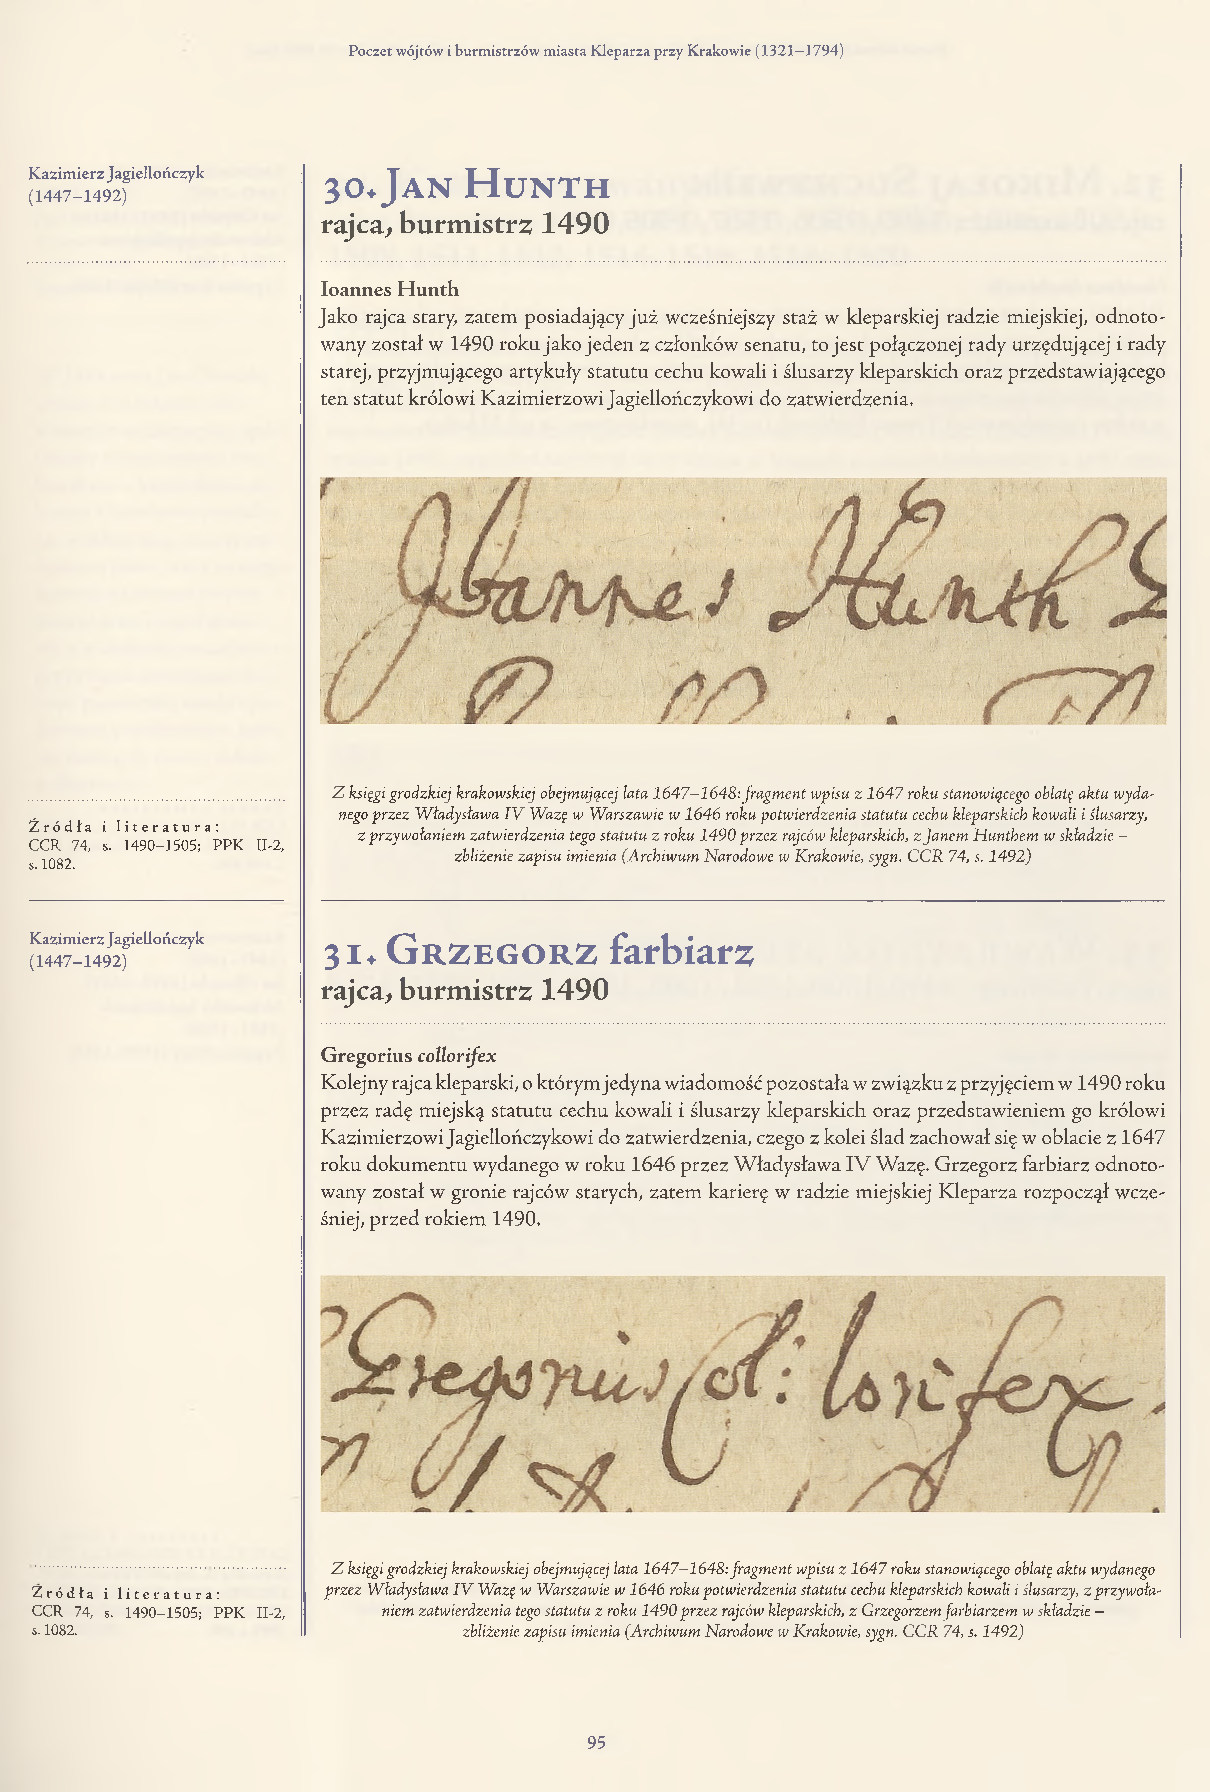 Poczet wójtów i burmistrzów miasta Kleparza przy Krakowie (1321–1794)
Kazimierz Jagiellończyk
(1447–1492)
30. Jan Hunth
rajca, burmistrz 1490
Ioannes Hunth
Jako rajca stary, zatem posiadający już wcześniejszy staż w kleparskiej radzie miejskiej, odnoto-
wany został w 1490 roku jako jeden z członków senatu, to jest połączonej rady urzędującej i rady
starej, przyjmującego artykuły statutu cechu kowali i ślusarzy kleparskich oraz przedstawiającego
ten statut królowi Kazimierzowi Jagiellończykowi do zatwierdzenia.
Joannes Hunth
Z księgi grodzkiej krakowskiej obejmującej lata 1647–1648: fragment wpisu z 1647 roku stanowiącego oblatę aktu wyda-
nego przez Władysława IV Wazę w Warszawie w 1646 roku potwierdzenia statutu cechu kleparskich kowali i ślusarzy,
z przywołaniem zatwierdzenia tego statutu z roku 1490 przez rajców kleparskich, z Janem Hunthem w składzie –
zbliżenie zapisu imienia (Archiwum Narodowe w Krakowie, sygn. CCR 74, s. 1492)
Źródła i literatura:
CCR 74, s. 1490–1505; PPK II-2,
s. 1082.
Kazimierz Jagiellończyk
(1447–1492)
31. Grzegorz farbiarz
rajca, burmistrz 1490
Gregorius collorifex
Kolejny rajca kleparski, o którym jedyna wiadomość pozostała w związku z przyjęciem w 1490 roku
przez radę miejską statutu cechu kowali i ślusarzy kleparskich oraz przedstawieniem go królowi
Kazimierzowi Jagiellończykowi do zatwierdzenia, czego z kolei ślad zachował się w oblacie z 1647
roku dokumentu wydanego w roku 1646 przez Władysława IV Wazę. Grzegorz farbiarz odnoto-
wany został w gronie rajców starych, zatem karierę w radzie miejskiej Kleparza rozpoczął wcze-
śniej, przed rokiem 1490.
Gregorius Col: lorifex
Z księgi grodzkiej krakowskiej obejmującej lata 1647–1648: fragment wpisu z 1647 roku stanowiącego oblatę aktu wydanego
przez Władysława IV Wazę w Warszawie w 1646 roku potwierdzenia statutu cechu kleparskich kowali i ślusarzy, z przywoła-
niem zatwierdzenia tego statutu z roku 1490 przez rajców kleparskich, z Grzegorzem farbiarzem w składzie –
zbliżenie zapisu imienia (Archiwum Narodowe w Krakowie, sygn. CCR 74, s. 1492)
Źródła i literatura:
CCR 74, s. 1490–1505; PPK II-2,
s. 1082.
95